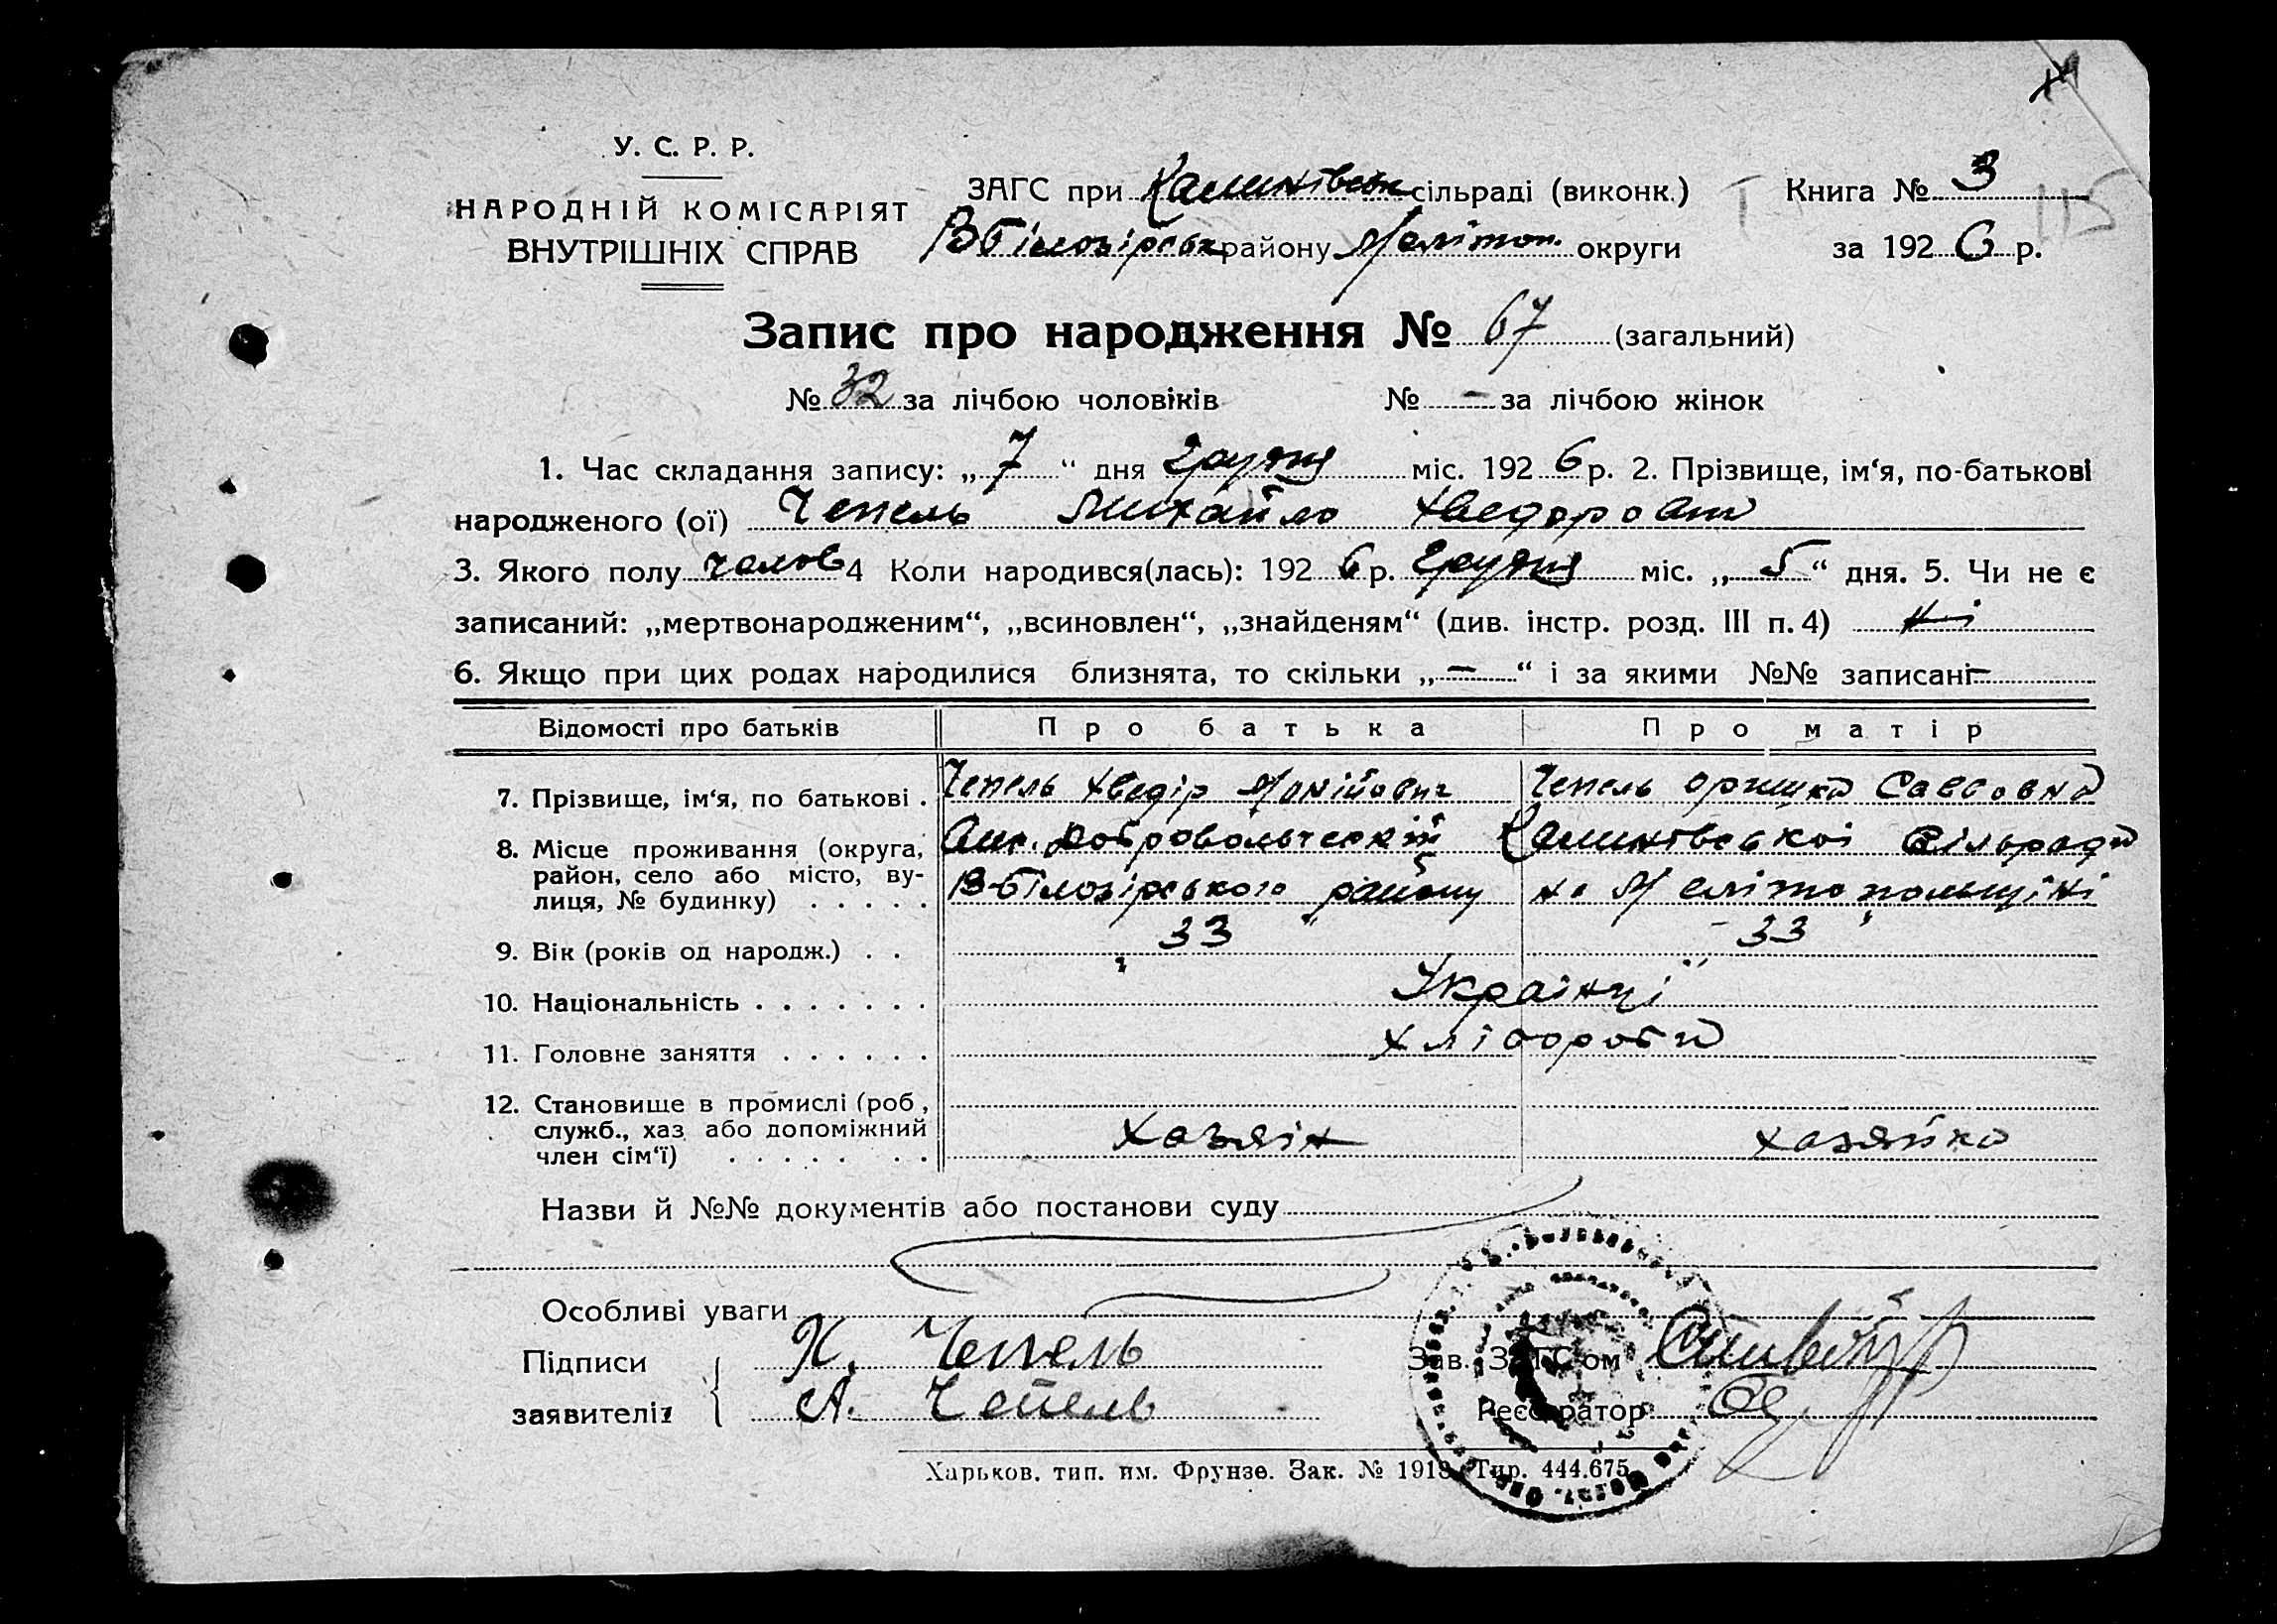 У. С. Р. Р.
НАРОДНІЙ КОМІСАРІЯТ
ВНУТРІШНІХ СПРАВ
ЗАГС при Калинівськ сільраді (виконк.)
ВБілозірськ району Мелітоп. округи
Книга № 3
за 1926 р.
115
Запис про народження № 67 (загальний)
№ 32 за лічбою чоловіків № – за лічбою жінок
1. Час складання запису: „7“ дня Грудня міс. 1926 р. 2. Прізвище, ім‘я, по-батькові
народженого (ої) Чепель Михайло Хведорович
3. Якого полу чолов 4 Коли народився(лась): 1926 р. Грудня міс. „5“ дня. 5. Чи не є
записаний: „мертвонародженим“, „всиновлен“, „знайденям“ (див. інстр. розд. III п. 4) ні
6. Якщо при цих родах народилися близнята, то скільки „–“ і за якими №№ записані –
Відомості про батьків Про батька Про матір
7. Прізвище, ім‘я, по батькові . Чепель Хведір Чепель Оришка Саввовна
8. Місце проживання (округа, район, село або місто, вулиця, № будинку) . . . . .
Калинівської сільради
ВБілозірського району на Мелітопольщині
9. Вік (років од народж.) . . 33 33
10. Національність . . . . . . . Українці
11. Головне заняття . . . . . . хлібороби
12. Становище в промислі (роб., служб., хаз. або допоміжний член сім‘ї) . . . . . . . хазяїн хазяйка
Назви й №№ документів або постанови суду
Особливі уваги
Підписи заявителів
Х. Чепель
А. Чепель
Зав. ЗАГС‘ом
Реєстратор
Харьков. тип. им. Фрунзе. Зак. № 1918. Тир. 444.675.